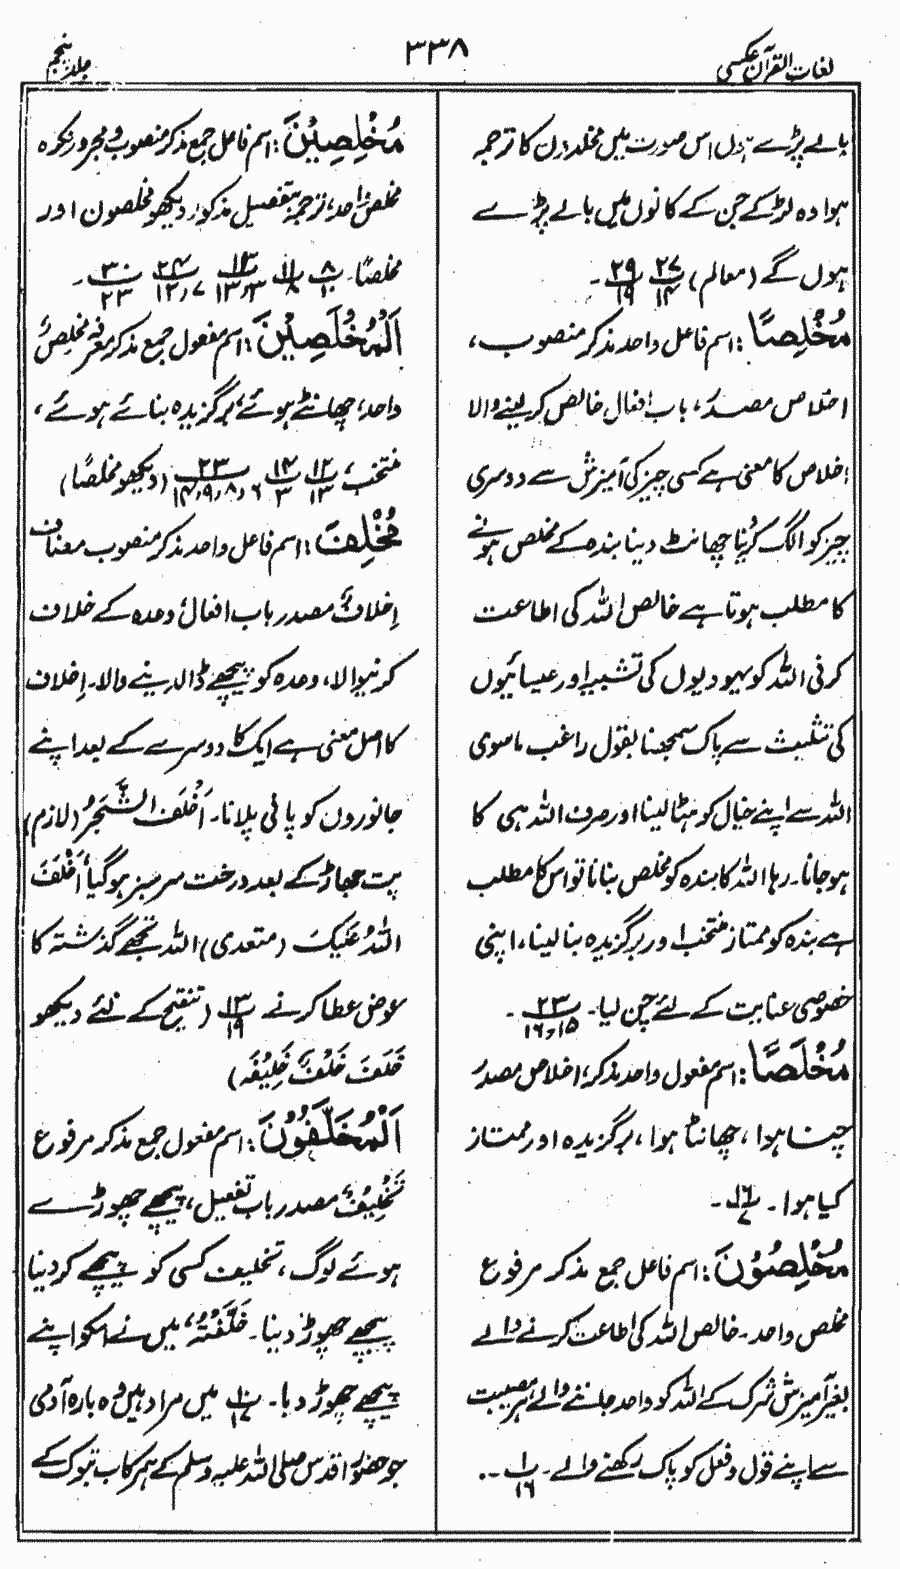 لغات القرآن عکسی
۳۳۸
جلد پنجم
بالے پڑے ہوں اس صورت میں مخلدون کا ترجمہ
ہوا وہ لڑکے جن کے کانوں میں بالے پڑے
ہوں گے (معالم) ۲۷/۱۴ ۲۹/۱۹ ۔
مُخْلِصًا : اسم فاعل واحد مذکر منصوب،
اخلاص مصدر، باب افعال خالص کر لینے والا
اخلاص کا معنی ہے کسی چیز کی آمیزش سے دوسری
چیز کو الگ کرنا چھانٹ دینا بندہ کے مخلص ہونے
کا مطلب ہوتا ہے خالص اللہ کی اطاعت
کرنی اللہ کو یہودیوں کی تشبیہ اور عیسائیوں
کی تثلیث سے پاک سمجھنا بقول راغب ماسوی
اللہ سے اپنے خیال کو ہٹا لینا اور صرف اللہ ہی کا
ہو جانا۔ رہا اللہ کا بندہ کو مخلص بنانا تو اس کا مطلب
ہے بندہ کو ممتاز منتخب اور برگزیدہ بنا لینا، اپنی
خصوصی عنایت کے لئے چن لیا۔ ۲۳/۱۶،۱۵ ۔
مُخْلَصًا : اسم مفعول واحد مذکر، اخلاص مصدر
چنا ہوا، چھانٹا ہوا، برگزیدہ اور ممتاز
کیا ہوا۔ ۱۶/۷ ۔
مُخْلِصُوْنَ : اسم فاعل جمع مذکر مرفوع
مخلص واحد۔ خالص اللہ کی اطاعت کرنے والے
بغیر آمیزش شرک کے اللہ کو واحد جاننے والے ہر مصیبت
سے اپنے قول و فعل کو پاک رکھنے والے۔ ۱/۱۶ ۔۔
مُخْلِصِیْنَ : اسم فاعل جمع مذکر منصوب و مجرور نکرہ
مخلص واحد، ترجمہ بتفصیل مذکور، دیکھو مخلصون اور
مخلصًا ۸/۱۰ ۱۱/۸ ۱۳/۱۳،۳ ۲۴/۱۲،۷ ۳۰/۲۳ ۔
اَلْمُخْلَصِیْنَ : اسم مفعول جمع مذکر معرفہ مخلصٌ
واحد، چھانٹے ہوئے، برگزیدہ بنائے ہوئے،
منتخب، ۱۲/۱۳ ۱۴/۳ ۲۳/۱۴،۹،۸،۶ (دیکھو مخلصًا)
مُخْلِفَ : اسم فاعل واحد مذکر منصوب مضاف
اِخلافٌ مصدر باب افعال وعدہ کے خلاف
کرنیوالا، وعدہ کو پیچھے ڈالدینے والا۔ اِخلاف
کا اصل معنی ہے ایک کا دوسرے کے بعد اپنے
جانوروں کو پانی پلانا۔ اَخْلَفَ الشَّجَرُ (لازم)
پت جھاڑ کے بعد درخت سرسبز ہو گیا، اَخْلَفَ
اللّٰہُ عَلَیْکَ (متعدی) اللہ تجھے گذشتہ کا
عوض عطا کرنے ۱۳/۱۹ (تنقیح کے لئے دیکھو
خَلَفَ خَلْفَ خَلِیْفَہ)
اَلْمُخَلَّفُوْنَ : اسم مفعول جمع مذکر مرفوع
تَخْلِیْفٌ مصدر باب تفعیل، پیچھے چھوڑے
ہوئے لوگ، تخلیف کسی کو پیچھے کر دینا
پیچھے چھوڑ دینا۔ خَلَّفْتُہٗ، میں نے اسکو اپنے
پیچھے چھوڑ دیا۔ ۱۰/۱۷ میں مراد ہیں وہ بارہ آدمی
جو حضور اقدس صلی اللہ علیہ وسلم کے ہمرکاب تبوک کے